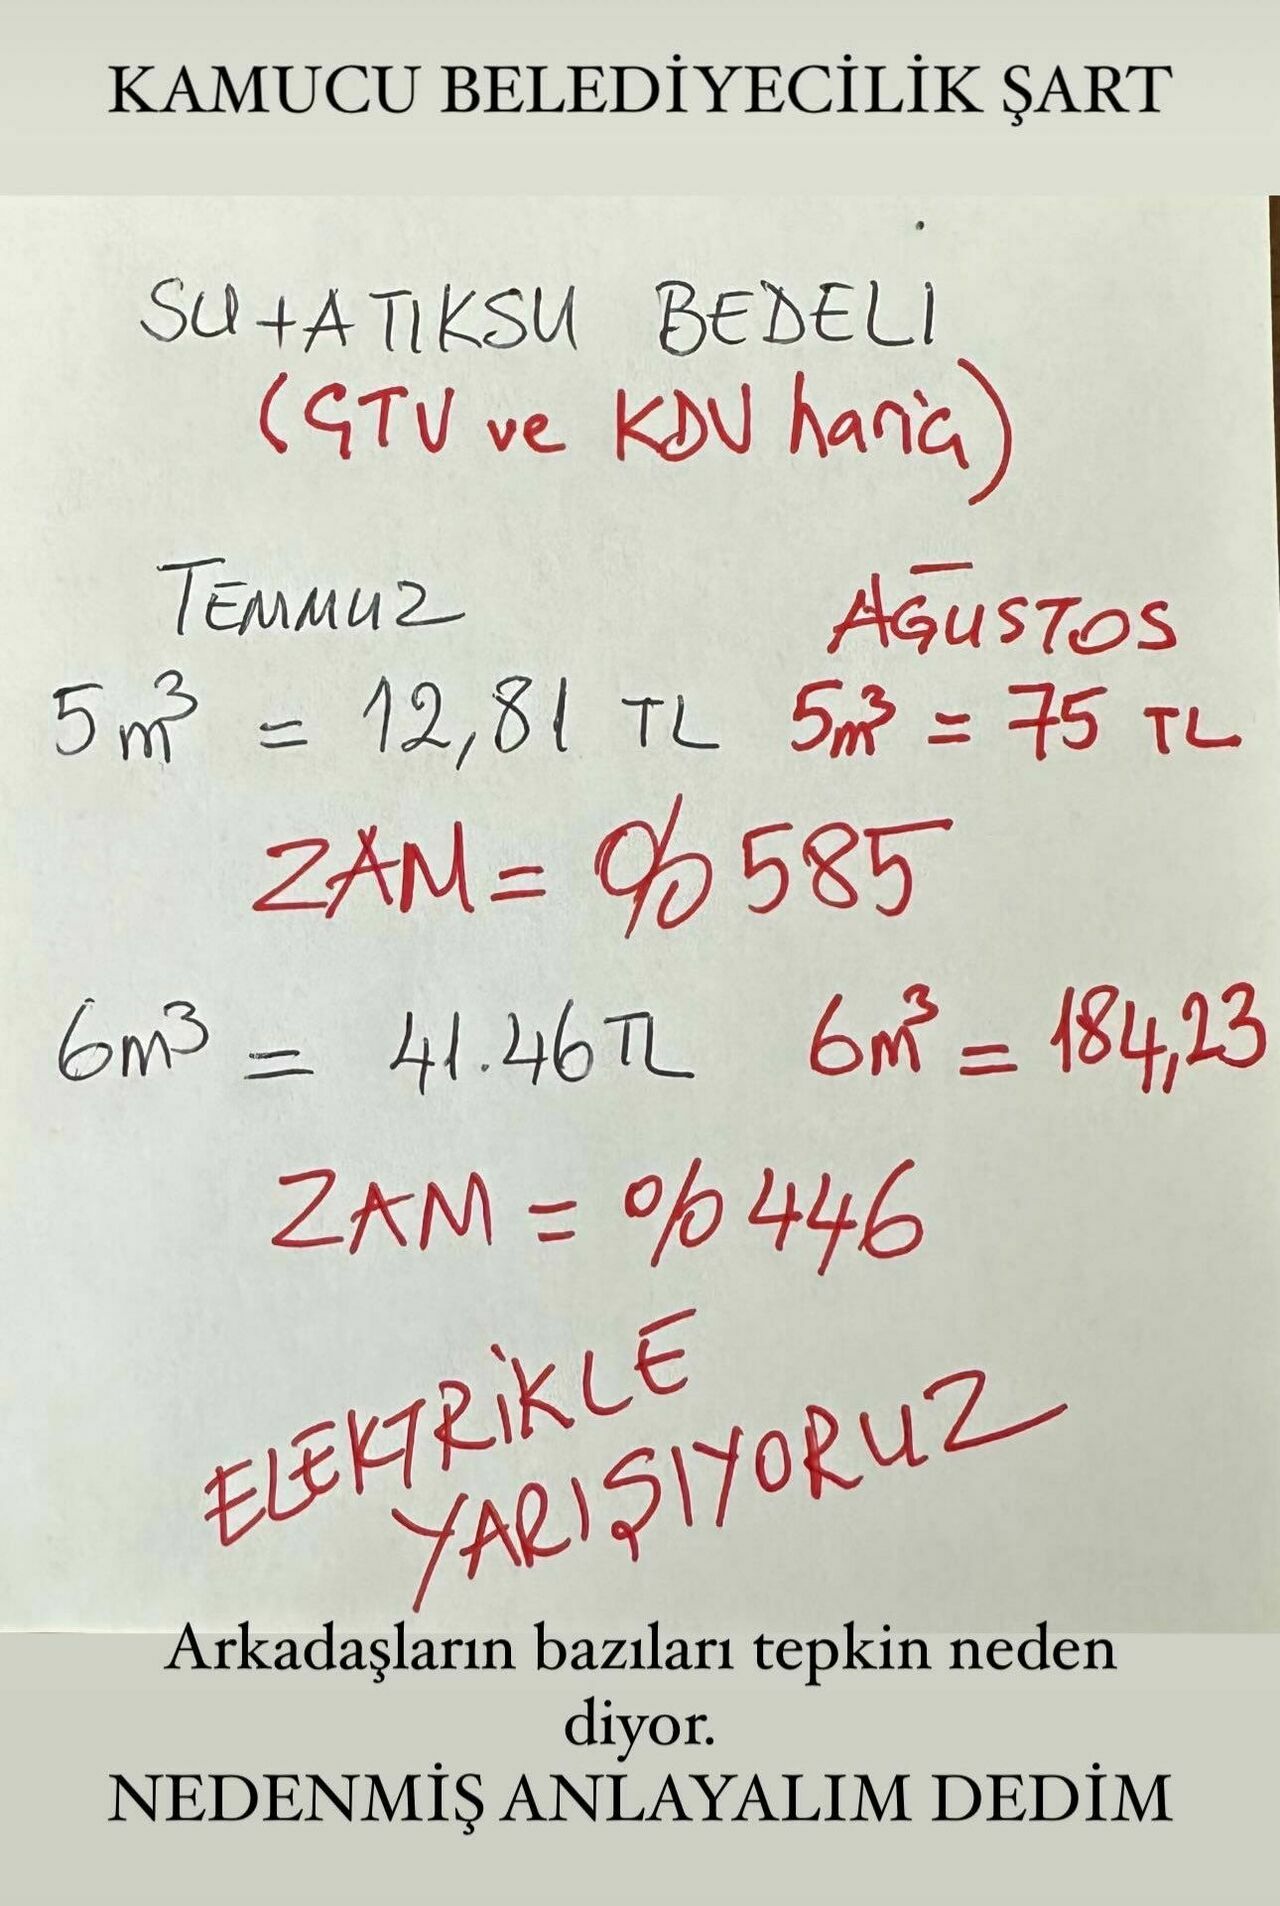 KAMUCU BELEDİYECİLİK ŞART
SU+ATIKSU BEDELİ
(ÇTV ve KDV hariç)
TEMMUZ AĞUSTOS
5m³ = 12,81 TL 5m³ = 75 TL
ZAM = %585
6m³ = 41.46 TL 6m³ = 184,23
ZAM = %446
ELEKTRİKLE
YARIŞIYORUZ
Arkadaşların bazıları tepkin neden
diyor.
NEDENMİŞ ANLAYALIM DEDİM